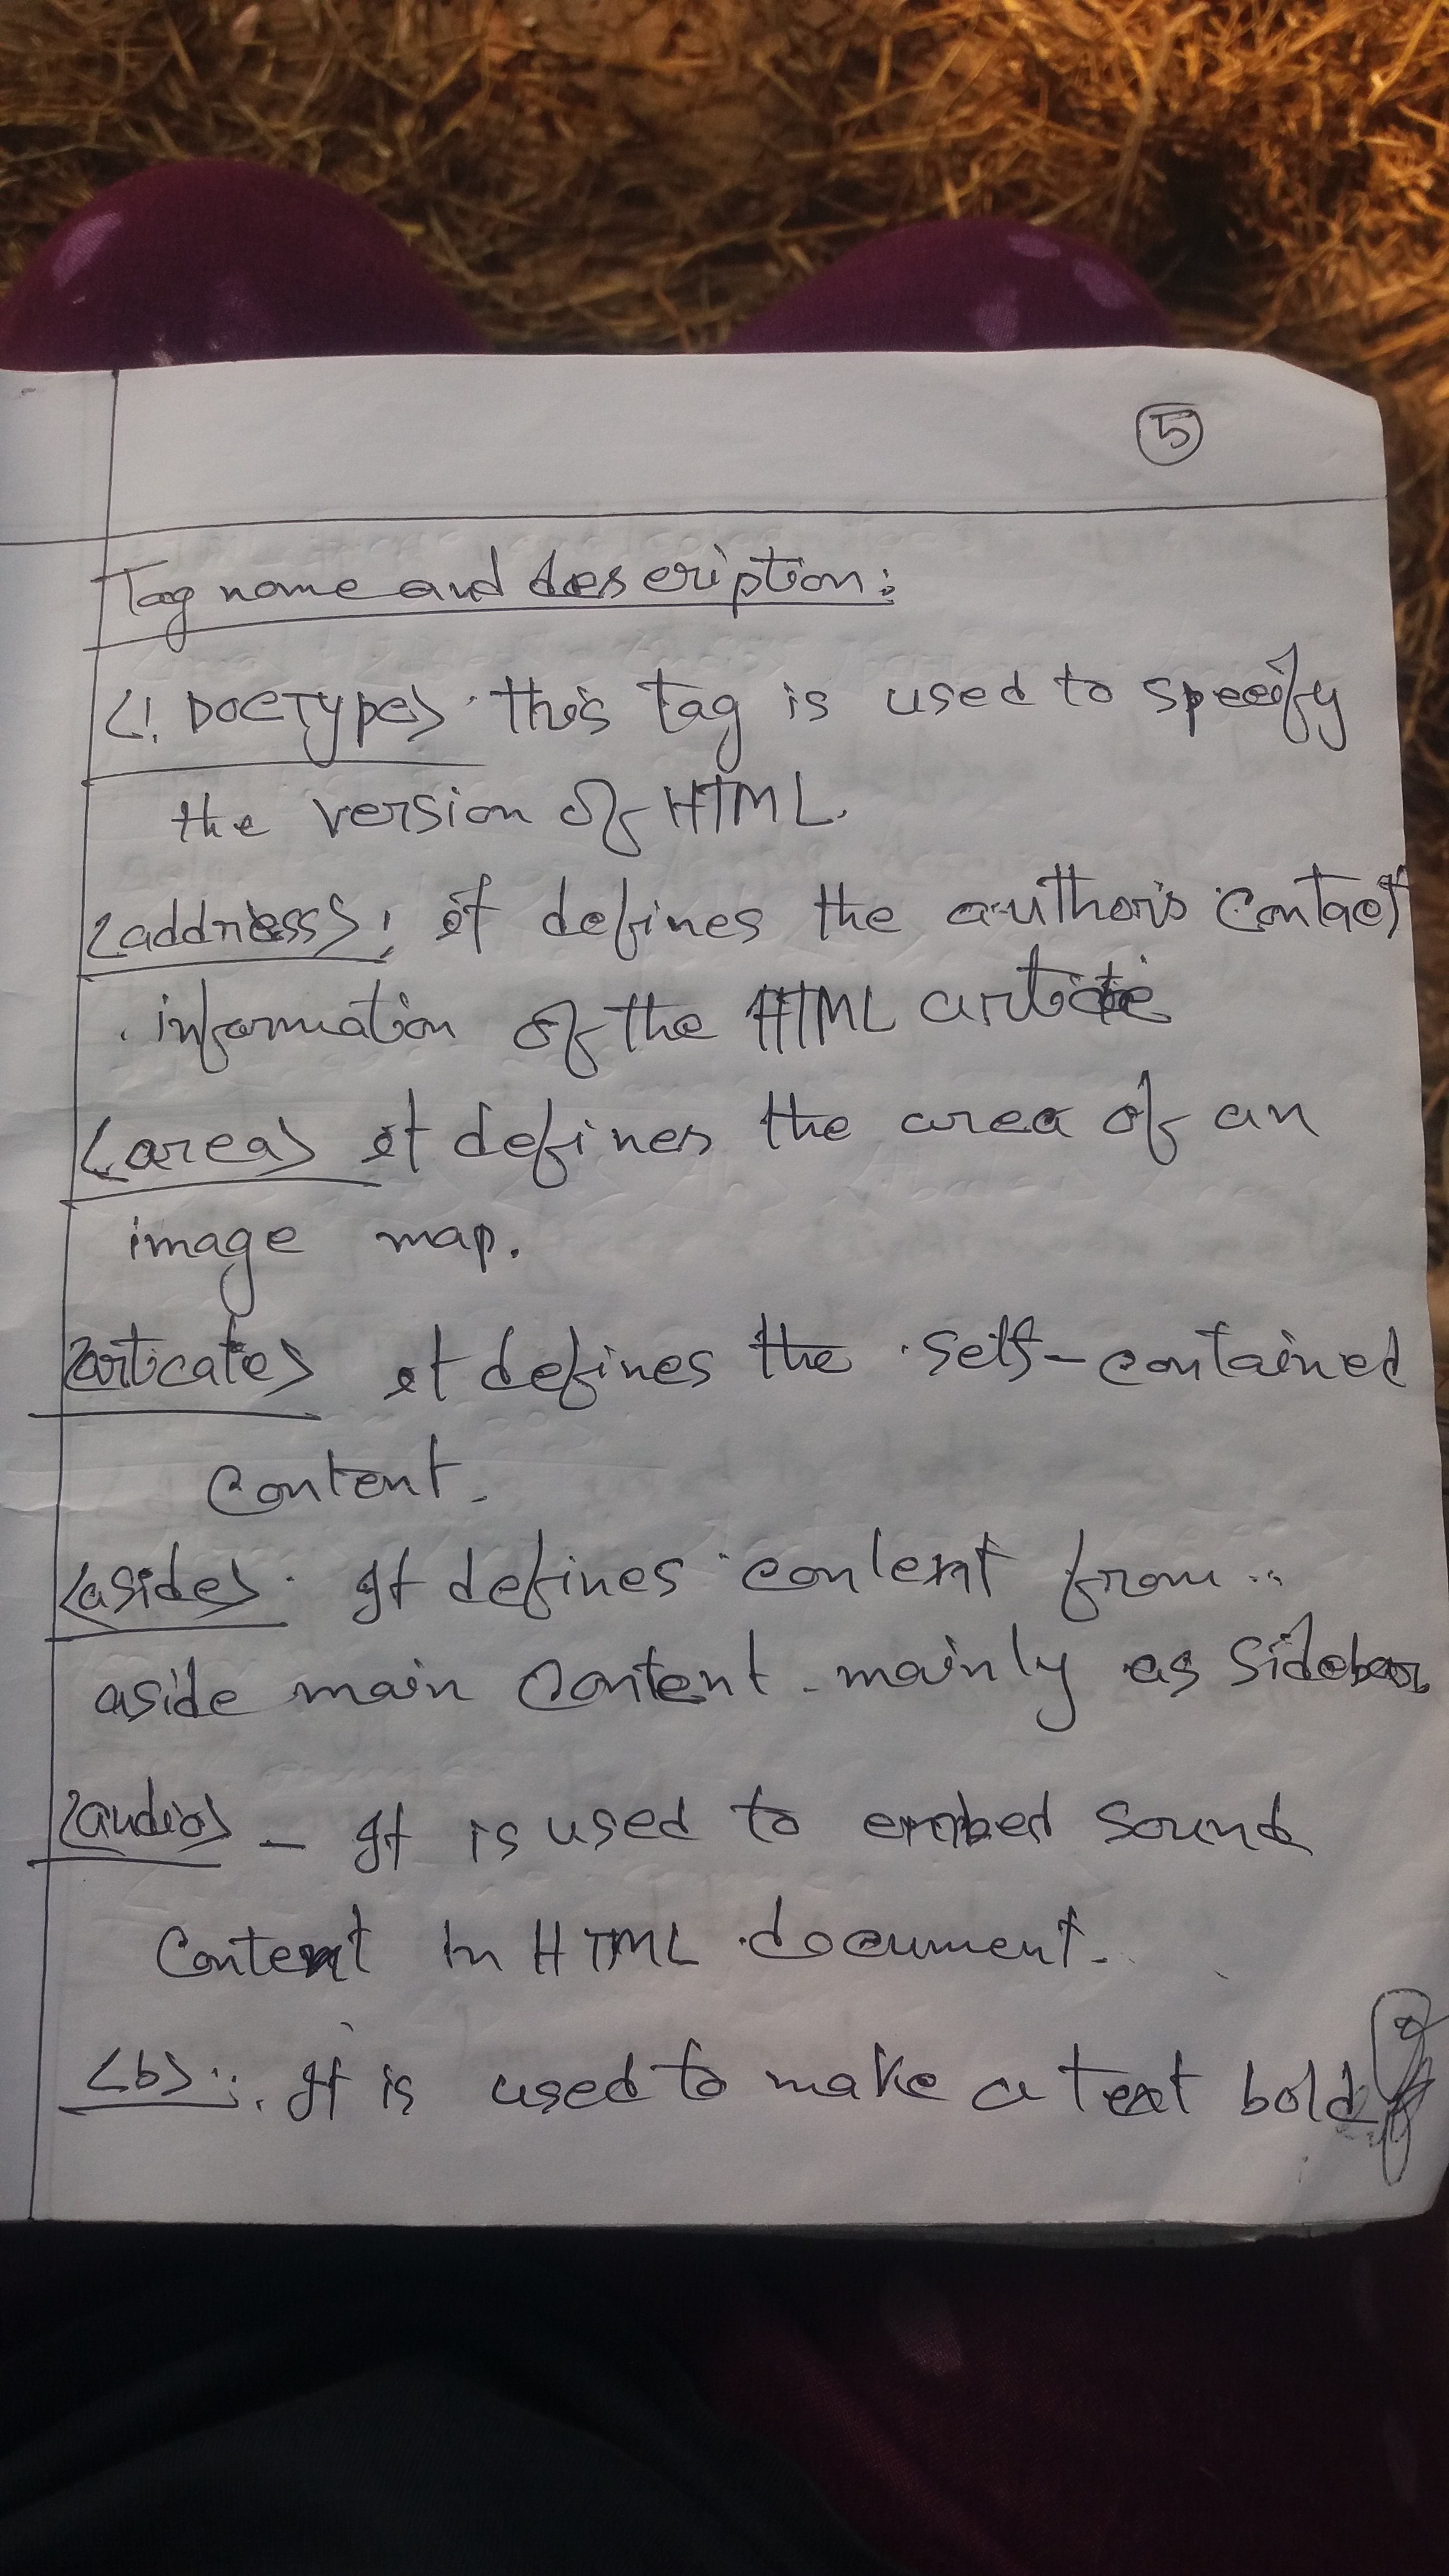 5
Tag name and description:
<! DOCTYPE> this tag is used to specify
the version of HTML.
<address>: it defines the author's contact
information of the HTML article
<area> it defines the area of an
image map.
<articate> it defines the self-contained
content.
<aside>. It defines content from..
aside main content. mainly as sidebar.
<audio> - It is used to embed sound
Content in HTML document.
<b>:. It is used to make a text bold